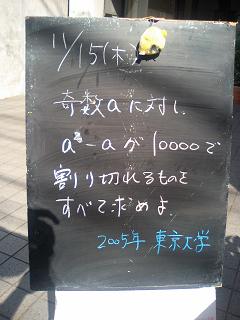 11/15(木)
奇数aに対し
a²-aが10000で
割り切れるものを
すべて求めよ
2005年 東京大学